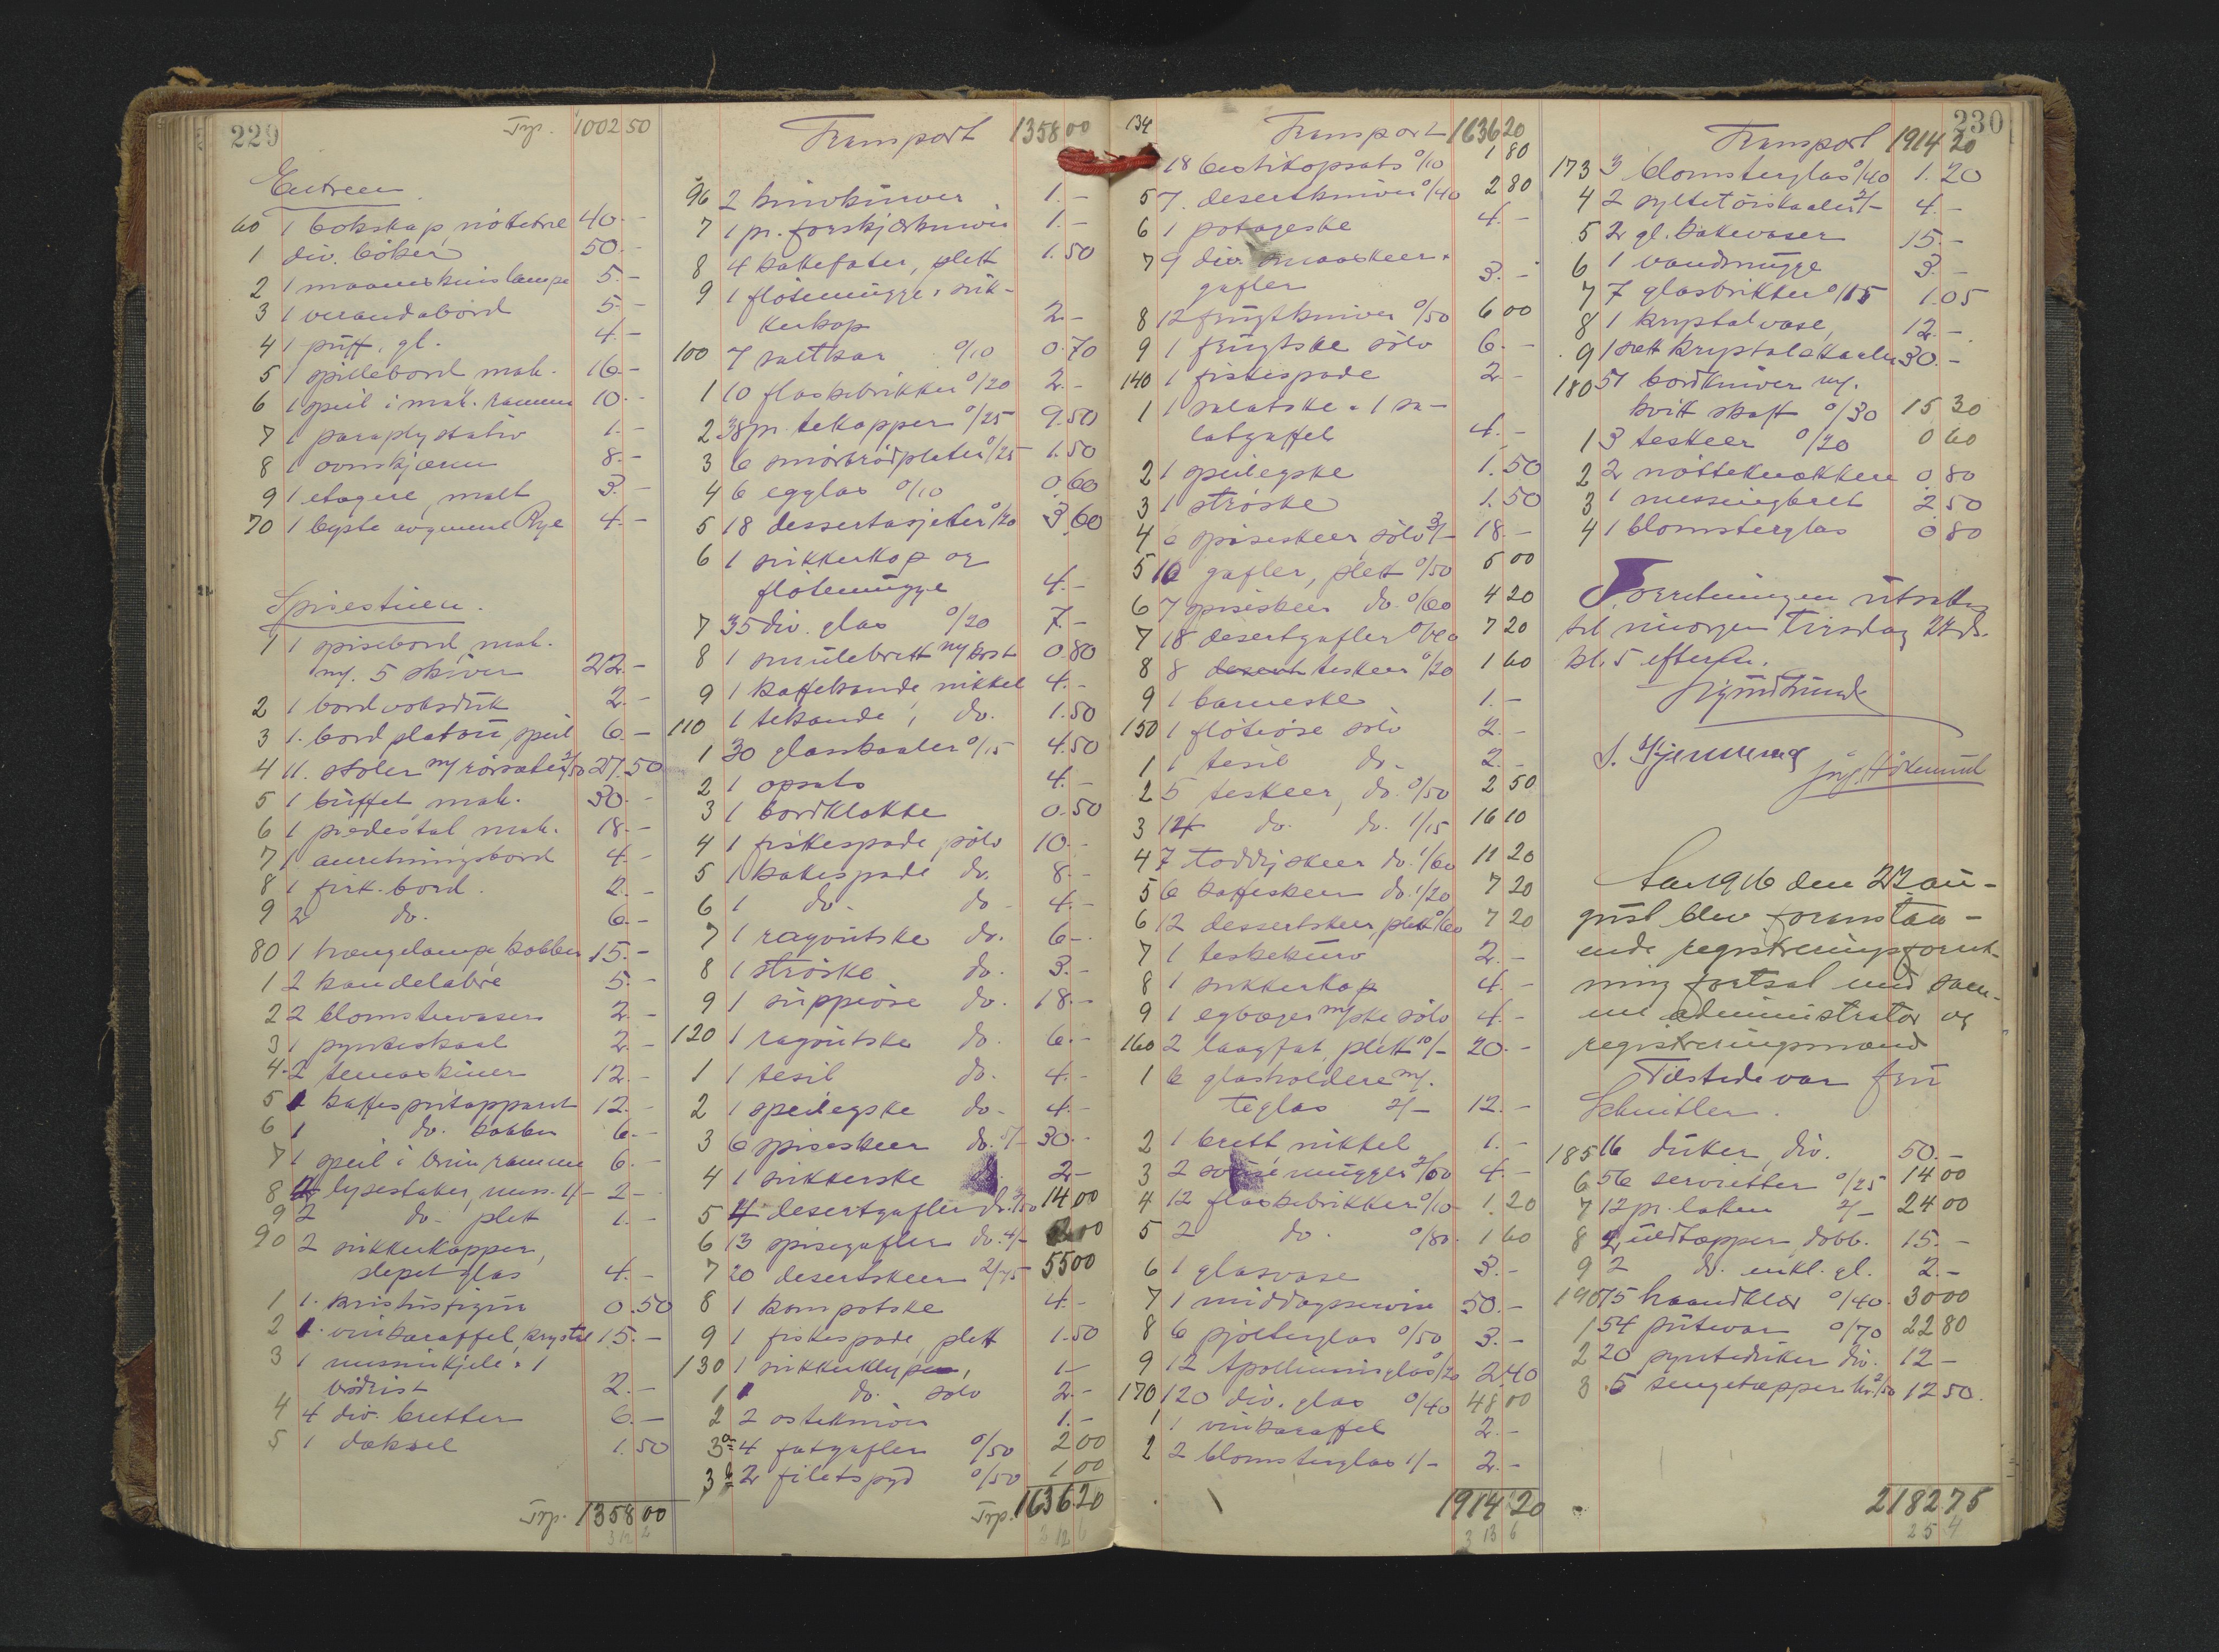 229
Trp. 1002 50
Entreen
60 1 bokskap, nötetræ 40.-
1 div. böker 50.-
2 1 maaneskinslampe 5.-
3 1 verandabord 5.-
4 1 puff, gl. 4.-
5 1 spillebord mah. 16.-
6 1 speil i mah. ramme 10.-
7 1 paraplystativ 1.-
8 1 ovnskjærm 8.-
9 1 etagere, malt 3.-
70 1 byste av general Rye 4.-
Spisestuen.
1 1 spisebord, mah.
m/. 5 skiver 22.-
2 1 bordvoksduk 2.-
3 1. bordplatau, speil 6.-
4 11. stoler m/ rörsæter 2/50 27.50
5 1 buffet mah. 30.-
6 1 piedestal, mah. 18.-
7 1 anretningsbord 4.-
8 1 firk. bord. 2.-
9 2 do. 6.-
80 1 hængelampe, kobber 15.-
1 2 kandelabre 5.-
2 2 blomstervaser 2.-
3 1 pynteskaal 2.-
4 2 temaskiner 12.-
5 1 kaffespritapparat 12.-
6 1 do. kobber 6.-
7 1 speil i brun ramme 6.-
8 2 lysestaker, mess. 1/- 2.-
9 2 do. plett 1.-
90 2 sukkerkopper,
slepet glas 4.-
1 1. kristusfigur 0.50
2 1. vinkaraffel, krystal 15.-
3 1 1
brödrist 2.-
4 4 div. bretter 6.-
5 1 doksel 1.50
Trp. 1358 00
3 12 2
Transport 1358 00
96 2 knivkurver 1.-
7 1 pr. forskjærkniver 1.-
8 4 kakefater, plett 1.50
9 1 flötemugge, suk-
kerkop 2.-
100 7 saltkar 0/10 0.70
1 10 flaskebrikker 0/20 2.-
2 38 pr. tekopper 0/25 9.50
3 6 smörbrödpleter 0/25 1.50
4 6 egglas 0/10 0.60
5 18 dessertasjetter 0/20 3.60
6 1 sukkerkop og
flötemugge 4.-
7 35 div. glas 0/20 7.-
8 1 smulebrett m/ kost 0.80
9 1 kaffekande, nikkel 4.-
110 1 tekande, do. 1.50
1 30 glasskaaler 0/15 4.50
2 1 opsats 4.-
3 1 bordklokke 0.50
4 1 fiskespade, sölv 10.-
5 1 kakespade do. 8.-
6 1 do. do. 4.-
7 1 ragoutske do. 6.-
8 1 ströske do. 3.-
9 1 suppeöse do. 18.-
120 1 ragoutske do. 6.-
1 1 tesil do. 4.-
2 1 speilegske do. 4.-
3 6 spiseskeer do. 5/- 30.-
4 1 sukkerske 2.-
5 4 desertgafler do. 3/50 14 00
6 13 spisegafler do. 4/- 52 00
7 20 desertskeer 2/75 55 00
8 1 kompotske 4.-
9 1 fiskespade, plett 1.50
130 1 sukkerklype, 1.-
1 1 do. sölv 2.-
2 2 osteknive 1.-
3a 4 fatgafler 0/50 2 00
3b 2 filetspyd 0/50 1 00
Trp. 1636 20
2 12 6
134
Transport 1636 20
18 bestikopsats 0/10 1 80
5 7. desertkniver 0/40 2 80
6 1 potageske 4.-
7 9 div. smaaskeer,
gafler 3.-
8 12 frugtkniver 0/50 6 00
9 1 frugtske sölv 6.-
140 1 fiskespade 2.-
1 1 salatske, 1 sa-
latgaffel 4.-
2 1 speilegske 1.50
3 1 ströske 1.50
4 6 spiseskeer, sölv 3/- 18.-
5 10 gafler, plett 0/50 5 00
6 7 spiseskeer do. 0/60 4 20
7 18 desertgafler 0/40 7 20
8 8 teskeer 0/20 1 60
9 1 barneske 1.-
150 1 flöteöse sölv 2.-
1 1 tesil do. 2.-
2 5 teskeer, do. 0/50 2 50
3 14 do. do. 1/15 16 10
4 7 toddyskeer do. 1/60 11 20
5 6 kaffeskeer do. 1/20 7 20
6 12 dessertskeer, plett 0/60 7 20
7 1 teskekurv 2.-
8 1 sukkerkop 4.-
9 1 egbæger m/ske sölv 4.-
160 2 laagfat, plett 10/- 20.-
1 6 glasholdere m/.
teglas 2/- 12.-
2 1 brett, nikkel 1.-
3 2 mugger 2/00 4.-
4 12 flaskebrikker 0/10 1.20
5 2 do. 0/80. 1 60
6 1 glasvase 3.-
7 1 middagservise 50.-
8 6 pjolterglas 0/50 3.-
9 12 Apollinarisglas 0/20 2.40
170 120 div. glas 0/40 48 00
1 1 vinkaraffel 2.-
2 2 blomsterglas 1/- 2.-
1914 20
3 13 6
230
Transport 1914 20
173 3 blomsterglas 0/40 1.20
4 2 syltetöiskaaler 2/- 4.-
5 2 gl. kakevaser 15.-
6 1 vandmugge 3.-
7 7 glasbrikker 0/15 1.05
8 1 krystalvase, 12.-
9 1 sæt krystalskaaler 30.-
180 51 bordkniver m/.
hvitt skaft 0/30 15 30
1 3 teskeer 0/20 0 60
2 2 nötteknækkere 0 80
3 1 messingbret 2 50
4 1 blomsterglas 0 80
Forretningen utsattes
til imorgen tirsdag 22 ds.
kl. 5 efterm.
Aar 1916 den 22 au-
gust blev foranstaa-
ende registreringsforret-
ning fortsat med sam-
me administrator og
registreringsmænd
Tilstede var fru
Schnitler.
185 16 duker, div. 50.-
6 56 servietter 0/25 14 00
7 12 pr. laken 2/- 24 00
8 2 uldtæpper, dobb. 15.-
9 2 do. enkl. gl. 2.-
190 75 haandklær 0/40 30 00
1 54 putevar 0/70 22 80
2 20 pynteduker div. 12 -
3 5 sengetæpper hv. 2/50 12 50.
2182 75
2 5 4